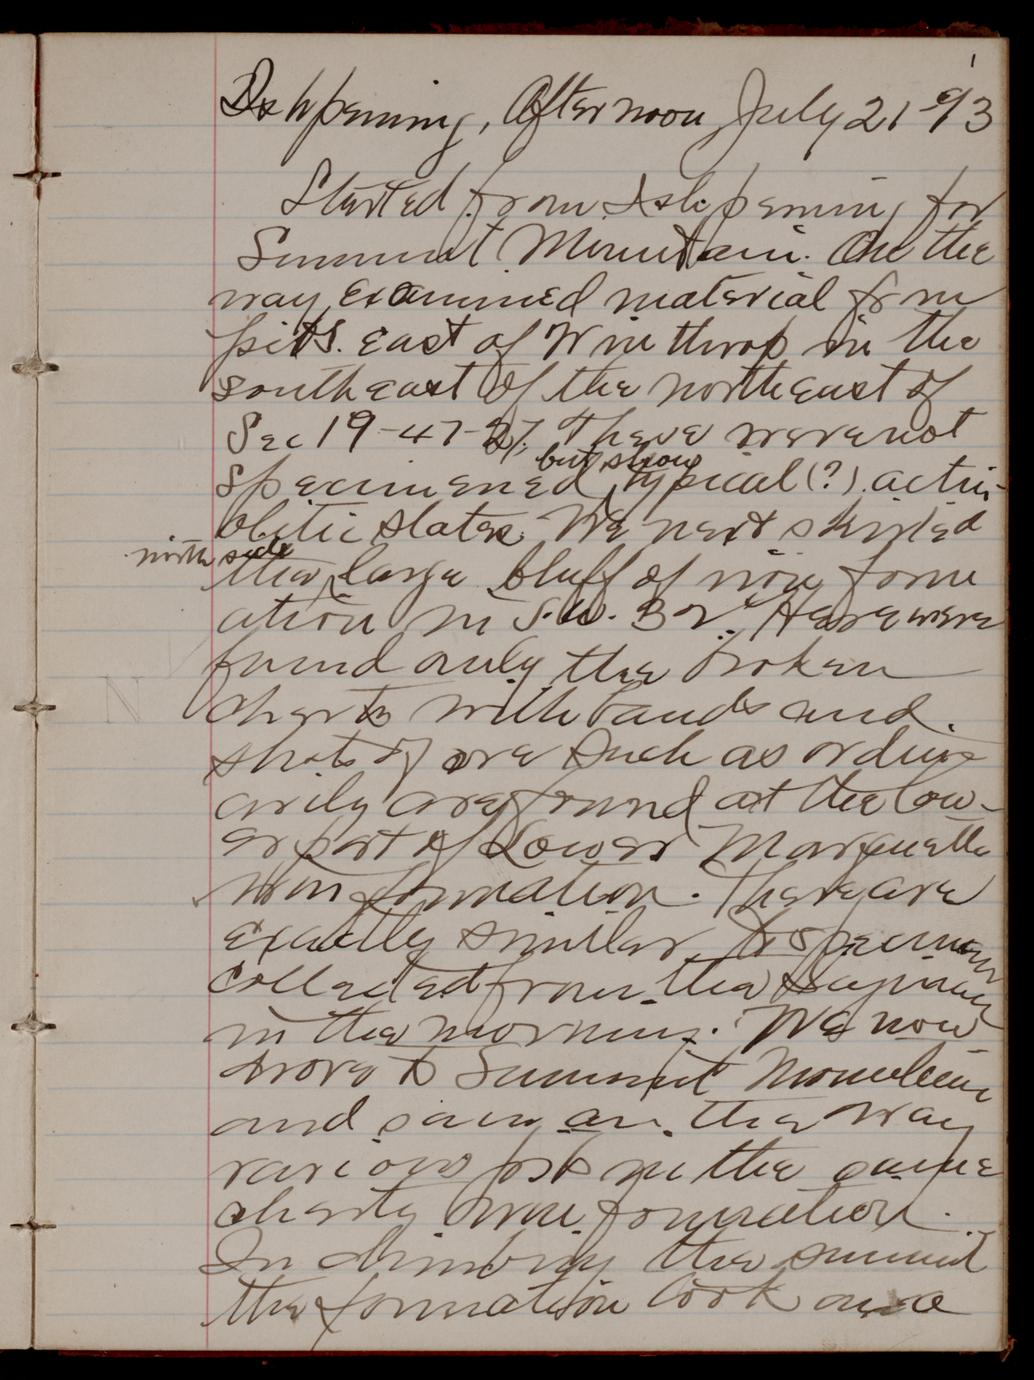 1
Ishpeming, Afternoon July 21 - 93
Started from Ishpeming for
Summit Mountain. On the
way, examined material from
pits. East of Winthrop in the
southeast of the northeast of
Sec 19-47-27. These were not
but show
specimened, typical (?) actin-
olitic slates. We next skirted
north side
the large bluff of iron form
ation in S.W. 32. Here were
found only the broken
cherts with bands and
shots of ore such as ordin-
arily are found at the low-
er part of Lower Marquette
iron formation. These are
exactly similar to specimens
collected from the
in the morning. We now
drove to Summit Mountain
and saw on the way
various pits in the same
cherty iron formation.
In climbing the summit
the formation took on a
N